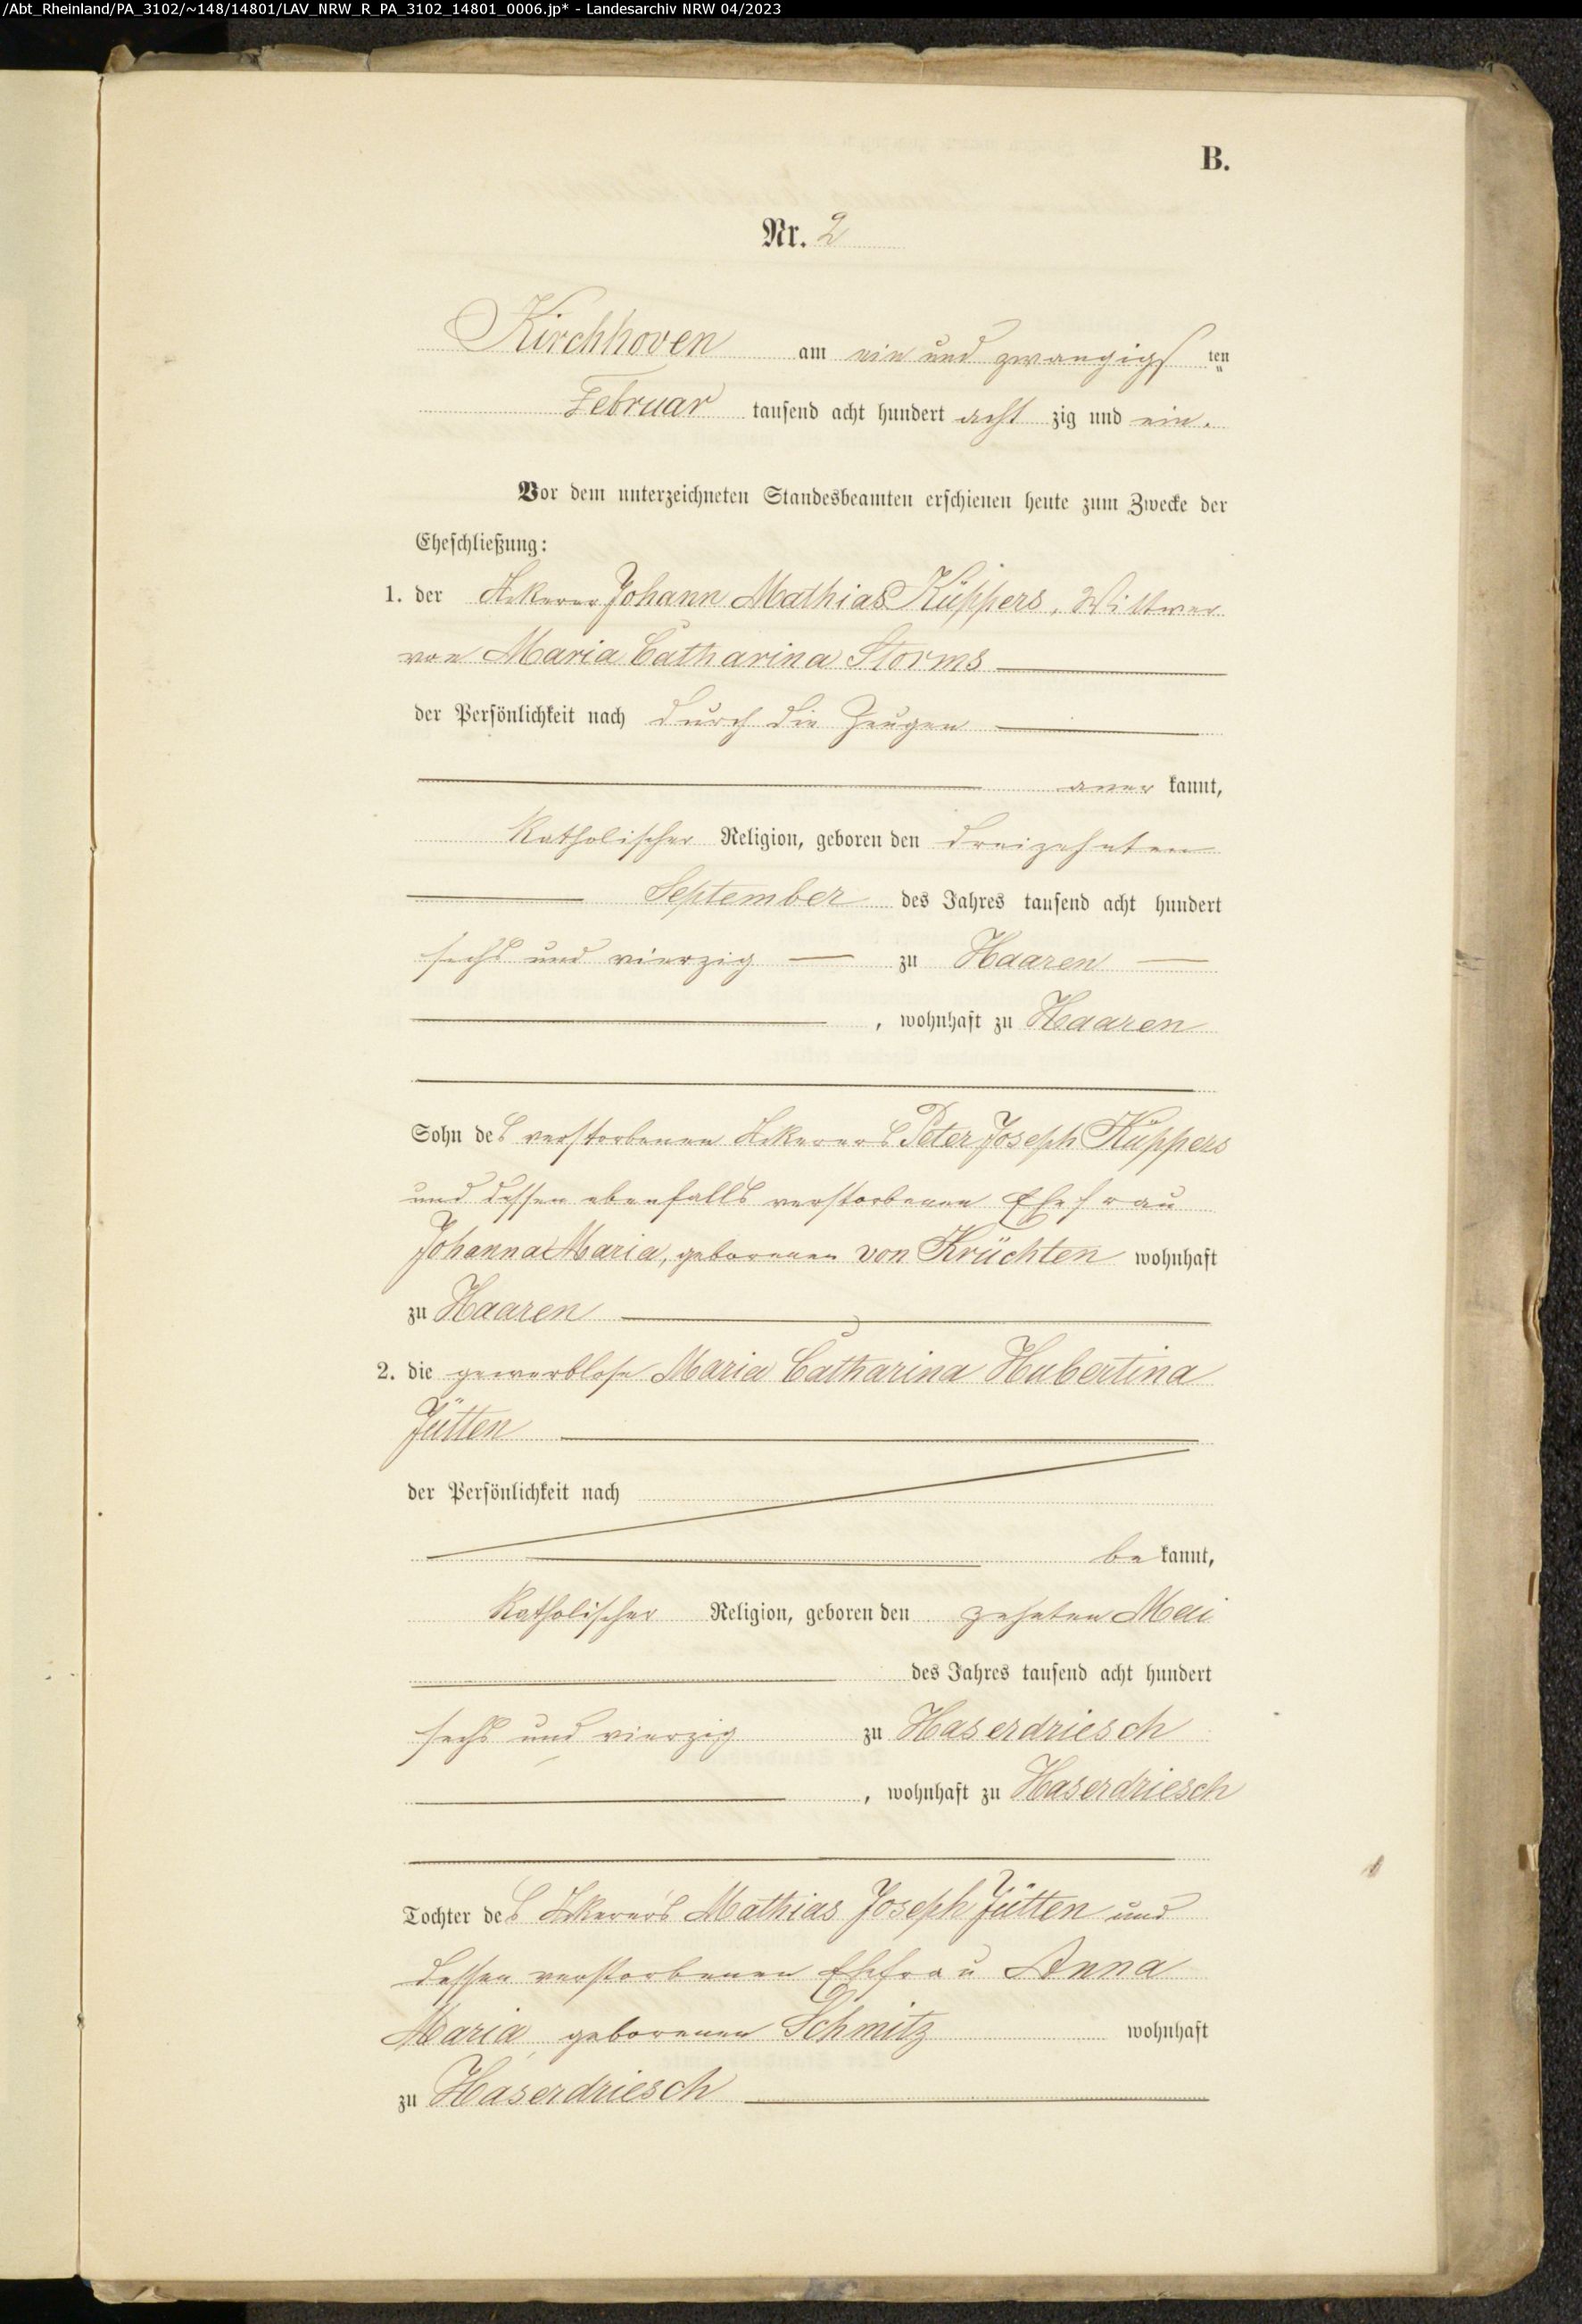 /Abt_Rheinland/PA_3102/~148/14801/LAV_NRW_R_PA_3102_14801_0006.jp* - Landesarchiv NRW 04/2023
B.
Nr. 2
Kirchhoven am ein und zwanzigs ten
Februar tausend acht hundert acht zig und ein.
Vor dem unterzeichneten Standesbeamten erschienen heute zum Zwecke der
Eheschließung:
1. der Ackerer Johann Mathias Küppers, Wittwer
von Maria Catharina Storms
der Persönlichkeit nach durch die Zeugen
aner kannt,
katholischer Religion, geboren den dreizehnten
September des Jahres tausend acht hundert
sechs und vierzig zu Haaren
, wohnhaft zu Haaren
Sohn des verstorbenen Ackerers Peter Joseph Küppers
und dessen ebenfalls verstorbenen Ehefrau
Johanna Maria, geborenen von Krüchten wohnhaft
zu Haaren
2. die gewerblose Maria Catharina Hubertina
Jütten
der Persönlichkeit nach
be kannt,
katholischer Religion, geboren den zehnten Mai
des Jahres tausend acht hundert
sechs und vierzig zu Haserdriesch
, wohnhaft zu Haserdriesch
Tochter des Ackerers Mathias Joseph Jütten und
dessen verstorbenen Ehefrau Anna
Maria, geborenen Schmitz wohnhaft
zu Haserdriesch